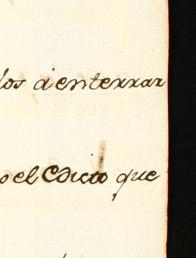 los à enterrar
o el Edicto que